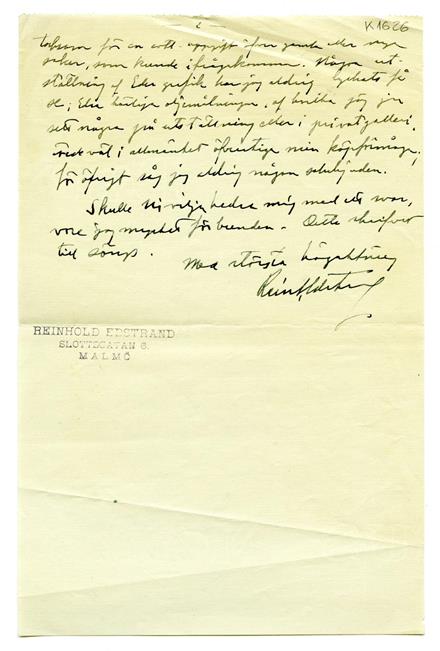 K1626
2
för en ev. uppgift öfver gamla eller nya
saker, som kunde ifrågakomma. Någon ut-
ställning af Eder grafik har jag aldrig lyckats få
se; Eder härliga oljemålningar, af hvilka jag ju
sett några på utställning eller i privatgalleri,
i allmänhet min köpförmåga,
för öfrigt såg jag aldrig någon
Skulle Ni vilja hedra mig med ett svar,
vore jag mycket förbunden. Dette
till
Med största högaktning
Reinh Edstrand
REINHOLD EDSTRAND
SLOTTSGATAN 6.
MALMÖ